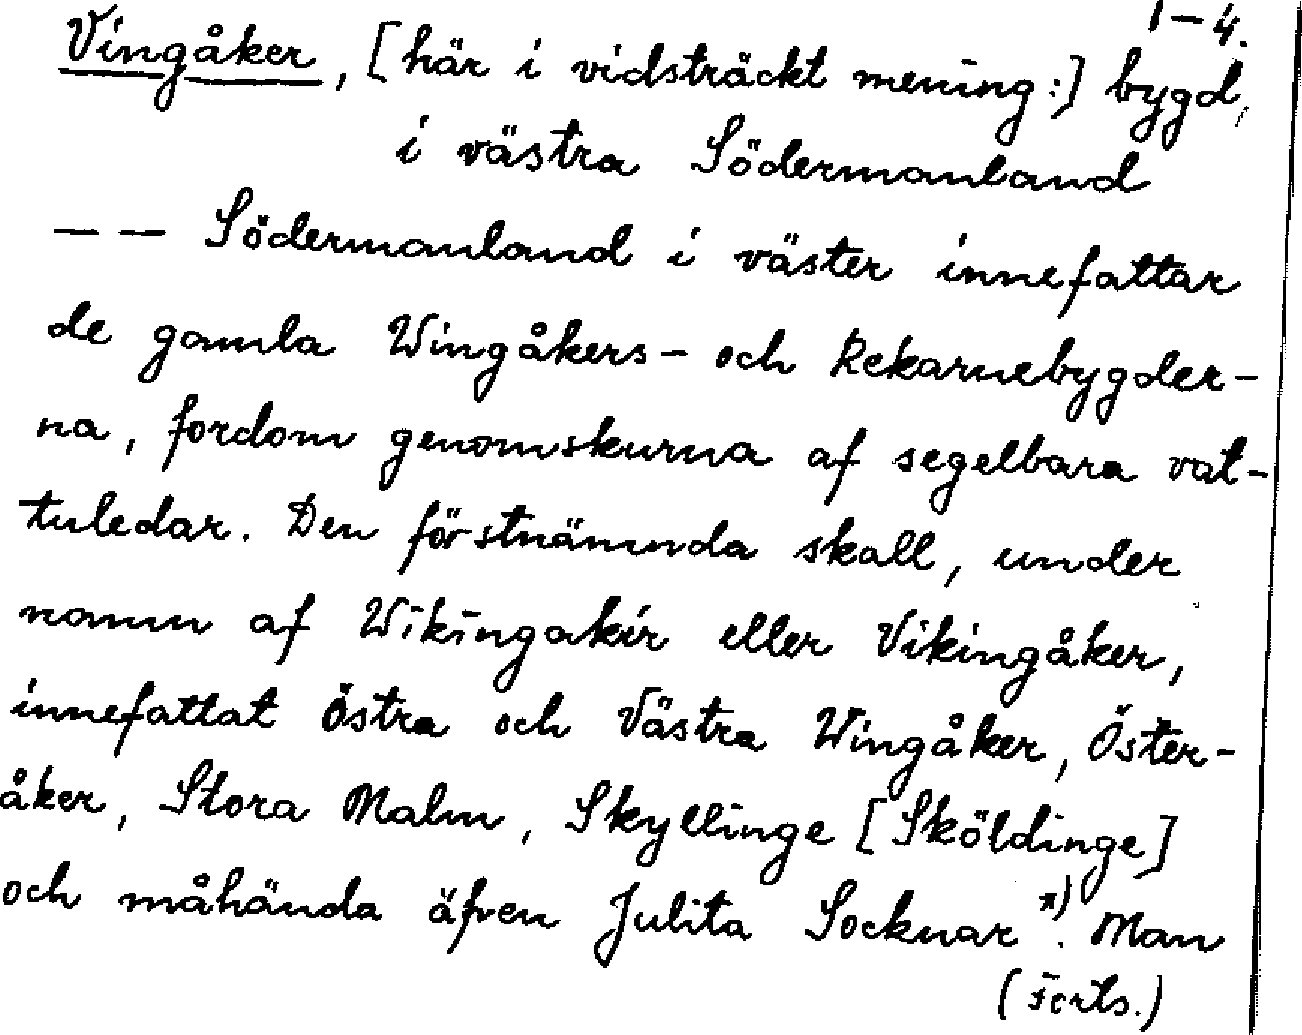 1–4.
Vingåker, [här i vidsträckt mening:] bygd,
i västra Södermanland
— — Södermanland i väster innefattar
de gamla Wingåkers- och Rekarnebygder-
na, fordom genomskurna af segelbara vat-
tuledar. Den förstnämnda skall, under
namn af Wikingakir eller Vikingåker,
innefattat Östra och Västra Wingåker, Öster-
åker, Stora Malm, Skyllinge [Sköldinge]
och måhända äfven Julita Socknar x). Man
(Forts.)